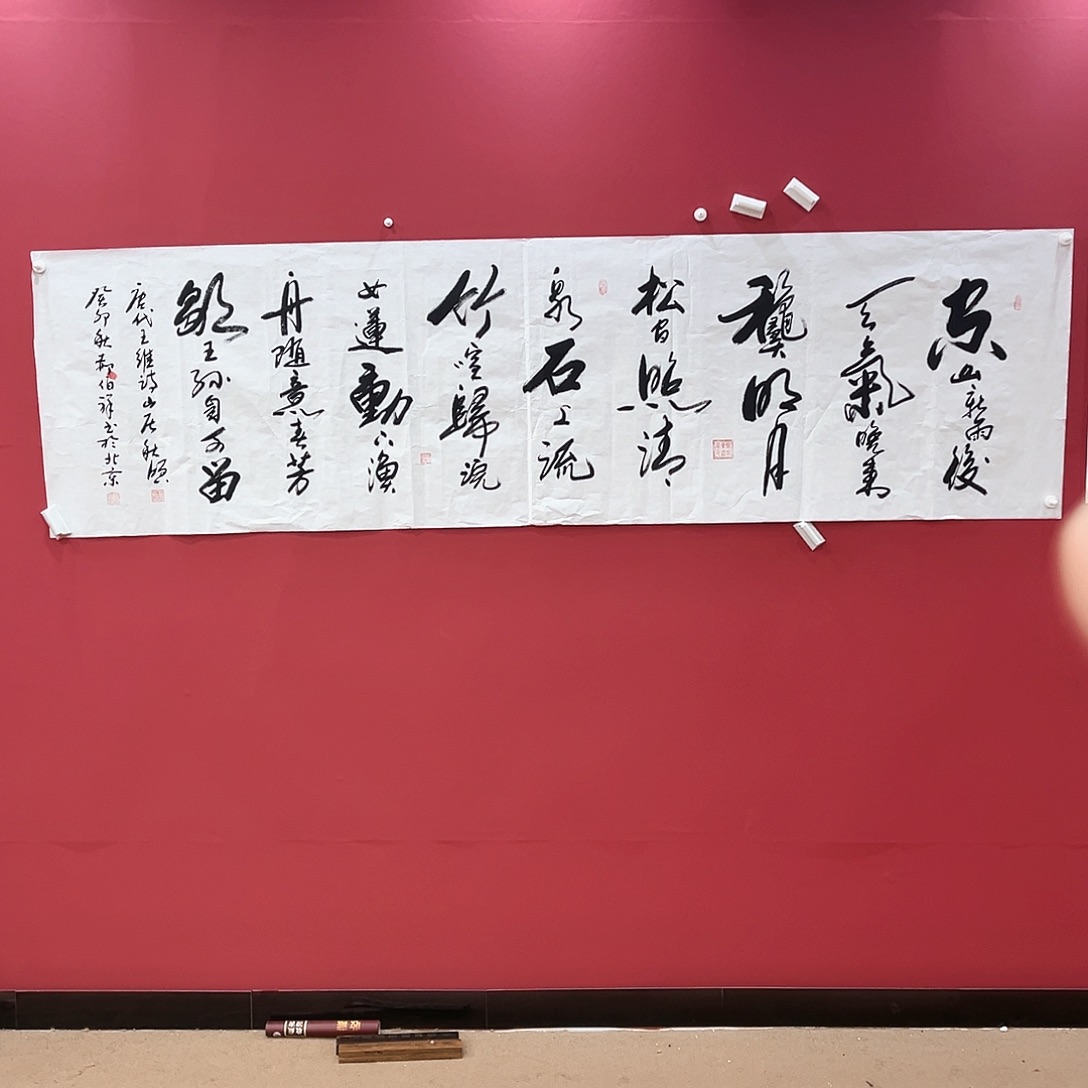 空山新雨後
天氣晚来
龝明月
松间照清
泉石上流
竹喧歸浣
女蓮動下漁
舟隨意春芳
歇王孫自可留
唐代王維詩山居秋暝
癸卯秋郝伯祥书於北京